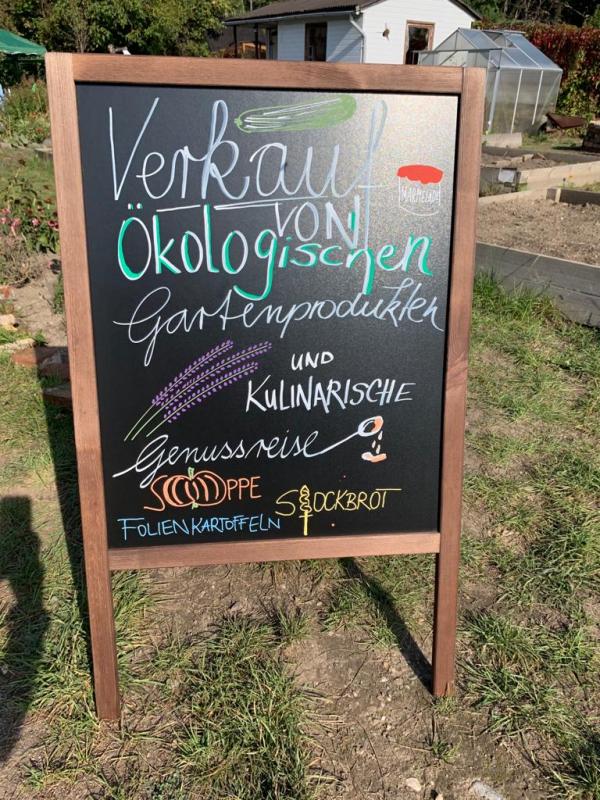 Verkauf
MARMELADE
VON
Ökologischen
Gartenprodukten
UND
KULINARISCHE
Genussreise
SUPPE
STOCKBROT
FOLIENKARTOFFELN